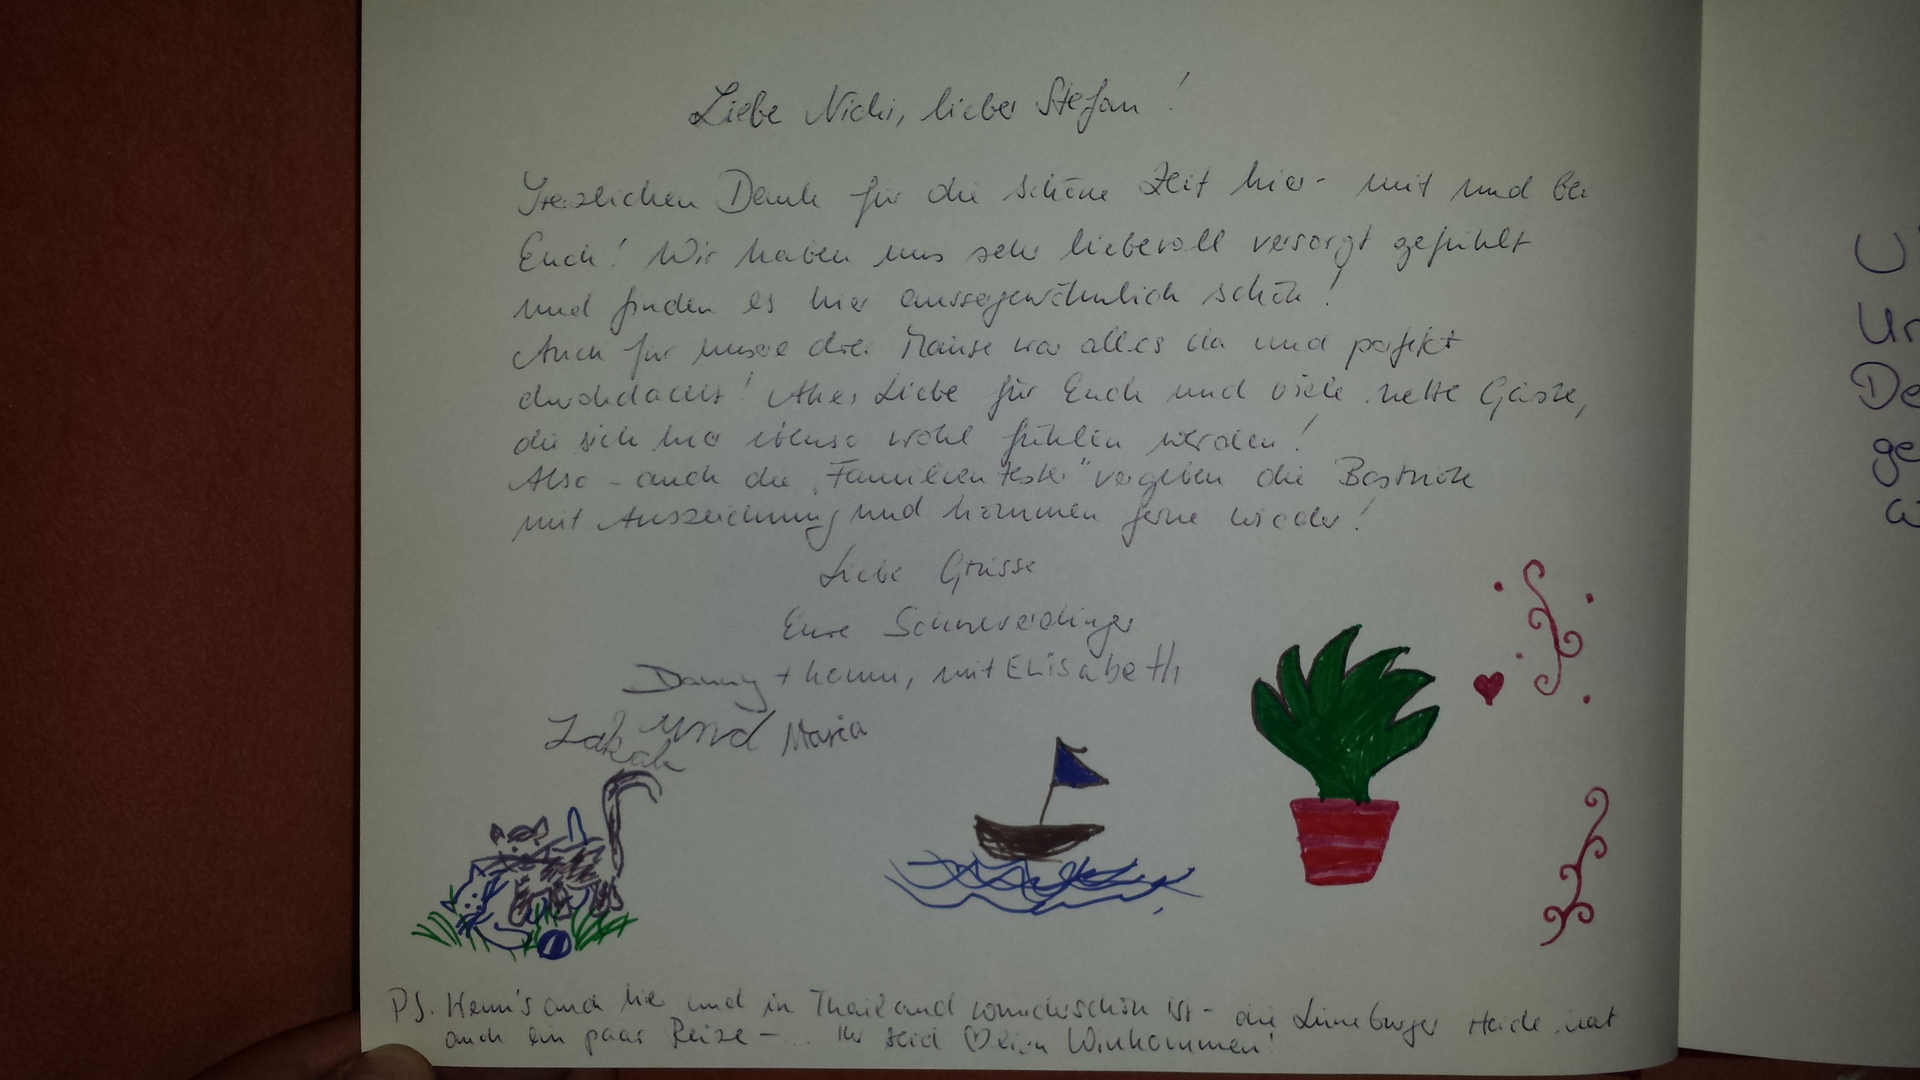 Liebe Nicki, lieber Stefan!
Herzlichen Dank für die schöne Zeit hier - mit und bei
Euch! Wir haben uns sehr liebevoll versorgt gefühlt
und finden es hier aussergewöhnlich schön!
Auch für unsere drei Mäuse war alles da und perfekt
durchdacht! Alles Liebe für Euch und viele nette Gäste,
die sich hier ebenso wohl fühlen werden!
Also - auch die „Familientester" vergeben die Bestnote
mit Auszeichnung und kommen gerne wieder!
Liebe Grüsse
Eure Schneverdinger
Danny + , mit ELisabeth
Jakob und Maria
PS. Wenn's auch hier und in Thailand wunderschön ist - die Lüneburger Heide hat
auch ein paar Reize - ... Ihr seid Willkommen!
U
Ur
De
ge